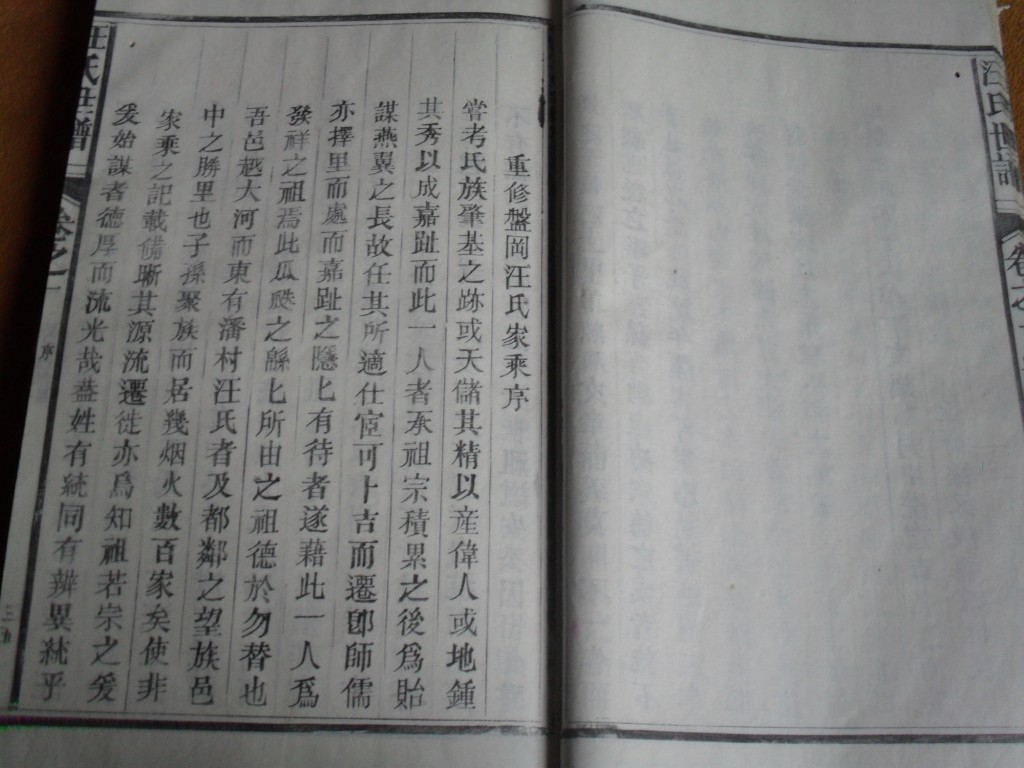 汪氏世譜
卷之一
重修盤岡汪氏家乘序
嘗考氏族肇基之跡或天儲其精以産偉人或地鍾
其秀以成嘉趾而此一人者承祖宗積累之後爲貽
謀燕翼之長故任其所適仕宦可卜吉而遷卽師儒
亦擇里而處而嘉趾之隱匕有待者遂藉此一人爲
發祥之祖焉此瓜瓞之緜匕所由之祖德於勿替也
吾邑越大河而東有潘村汪氏者及都鄰之望族邑
中之勝里也子孫聚族而居幾烟火數百家矣使非
家乘之記載備晰其源流遷徙亦烏知祖若宗之爰
爰始謀者德厚而流光哉葢姓有統同有辨異統乎
汪氏世譜
卷之一
序